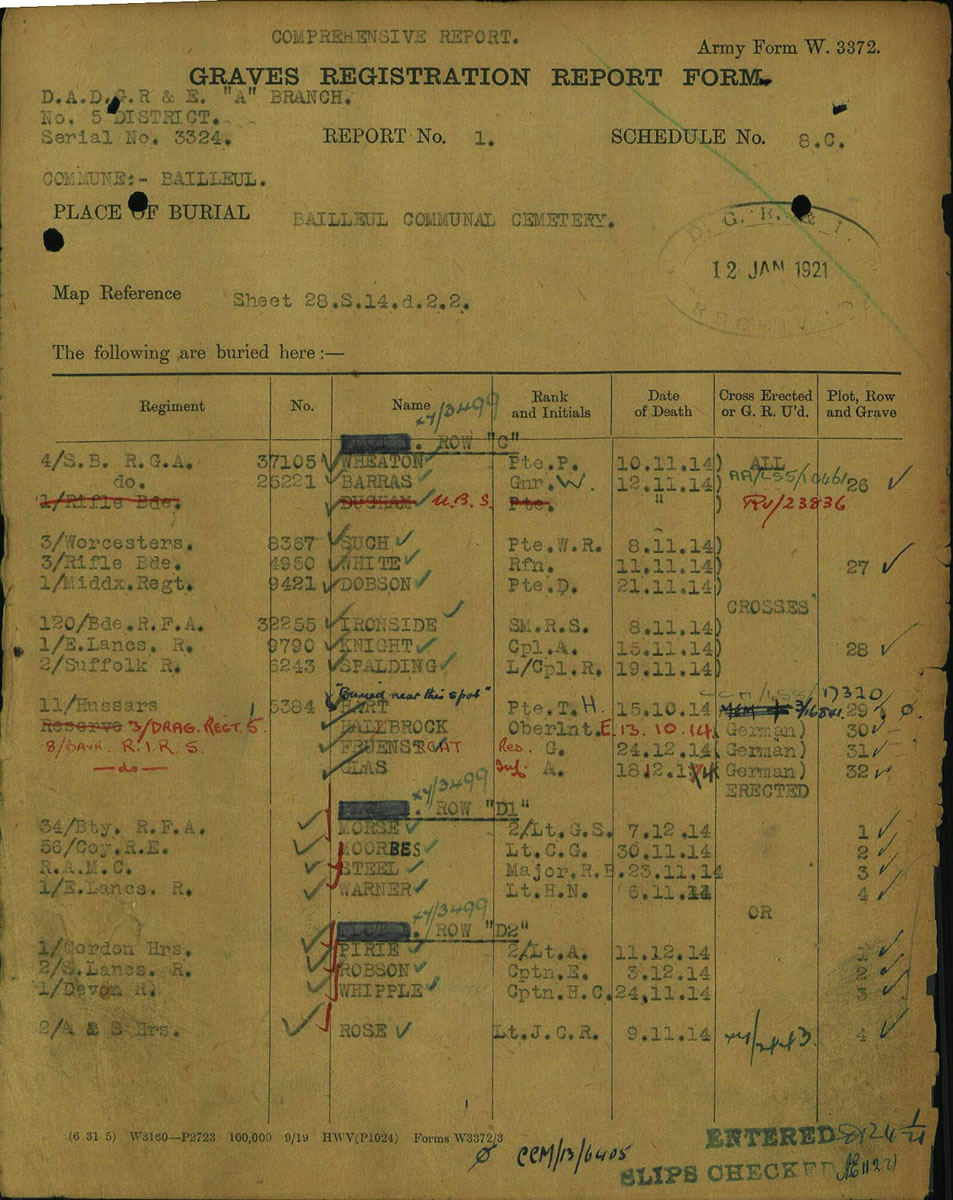 COMPREHENSIVE REPORT.
Army Form W. 3372.
GRAVES REGISTRATION REPORT FORM.
D.A.D.G.R & E. "A" BRANCH.
No. 5 DISTRICT.
Serial No. 3324.
REPORT No. 1. SCHEDULE No. 8.C.
COMMUNE:- BAILLEUL.
PLACE OF BURIAL BAILLEUL COMMUNAL CEMETERY.
D. G. R. & I.
12 JAN 1921
Map Reference Sheet 28.S.14.d.2.2.
The following are buried here :—
Regiment No. Name Rank and Initials Date of Death Cross Erected or G. R. U'd. Plot, Row and Grave
xy/3499
. ROW "C"
4/S.B. R.G.A. 37105 WHEATON Pte.P. 10.11.14) ALL
do. 25221 BARRAS Gnr.W. 12.11.14) 26
1/Rifle Bde. DUGHAM U.B.S. Pte. " ) RV/23836
3/Worcesters. 8367 SUCH Pte.W.R. 8.11.14)
3/Rifle Bde. 4950 WHITE Rfn. 11.11.14) 27
1/Middx.Regt. 9421 DOBSON Pte.D. 21.11.14)
CROSSES
120/Bde.R.F.A. 32255 IRONSIDE SM.R.S. 8.11.14)
1/E.Lancs. R. 9790 KNIGHT Cpl.A. 15.11.14) 28
2/Suffolk R. 6243 SPALDING L/Cpl.R. 19.11.14)
"Buried near this spot" 17320
11/Hussars 5384 HART Pte.T.H. 15.10.14) 29 ø
Reserve 3/DRAG. REGT. 5. BALLBROCK Oberlnt.E. 13.10.14. German) 30
8/BAYR. R.I.R. 5. Res. G. 24.12.14 German) 31
—do— GLAS Inf. A. 18.12.14 German) 32
ERECTED
xy/3499
. ROW "D1"
34/Bty. R.F.A. MORSE 2/Lt.G.S. 7.12.14 1
56/Coy.R.E. MOORBES Lt.C.G. 30.11.14 2
R.A.M.C. STEEL Major.R.B. 23.11.14 3
1/E.Lancs. R. WARNER Lt.H.N. 6.11.14 4
OR
xy/3499
. ROW "D2"
1/Gordon Hrs. PIRIE 2/Lt.A. 11.12.14 1
2/S.Lancs. R. ROBSON Cptn.E. 3.12.14 2
1/Devon R. WHIPPLE Cptn.H.C. 24.11.14 3
2/A & S Hrs. ROSE Lt.J.C.R. 9.11.14 4
(6 31 5) W3160—P2723 100,000 9/19 HWV(P1024) Forms W3372/3
ø CCM/13/6405
ENTERED
SLIPS CHECKED